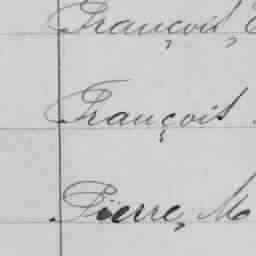 François,
François
Pierre, Mo